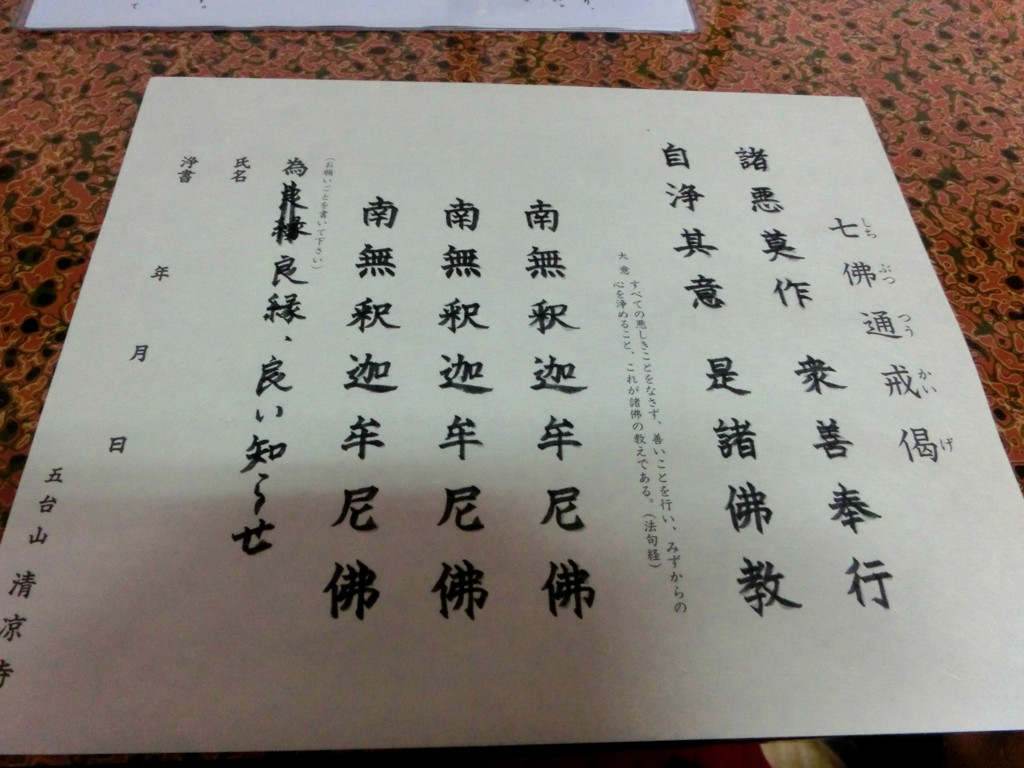 七佛通戒偈
しち ぶつ つう かい げ
諸悪莫作 衆善奉行
自浄其意 是諸佛教
大意 すべての悪しきことをなさず、善いことを行い、みずからの
心を浄めること、これが諸佛の教えである。（法句経）
南無釈迦牟尼佛
南無釈迦牟尼佛
南無釈迦牟尼佛
（お願いごとを書いて下さい）
為 良縁、良い知らせ
氏名
浄書
年 月 日
五台山 清凉寺